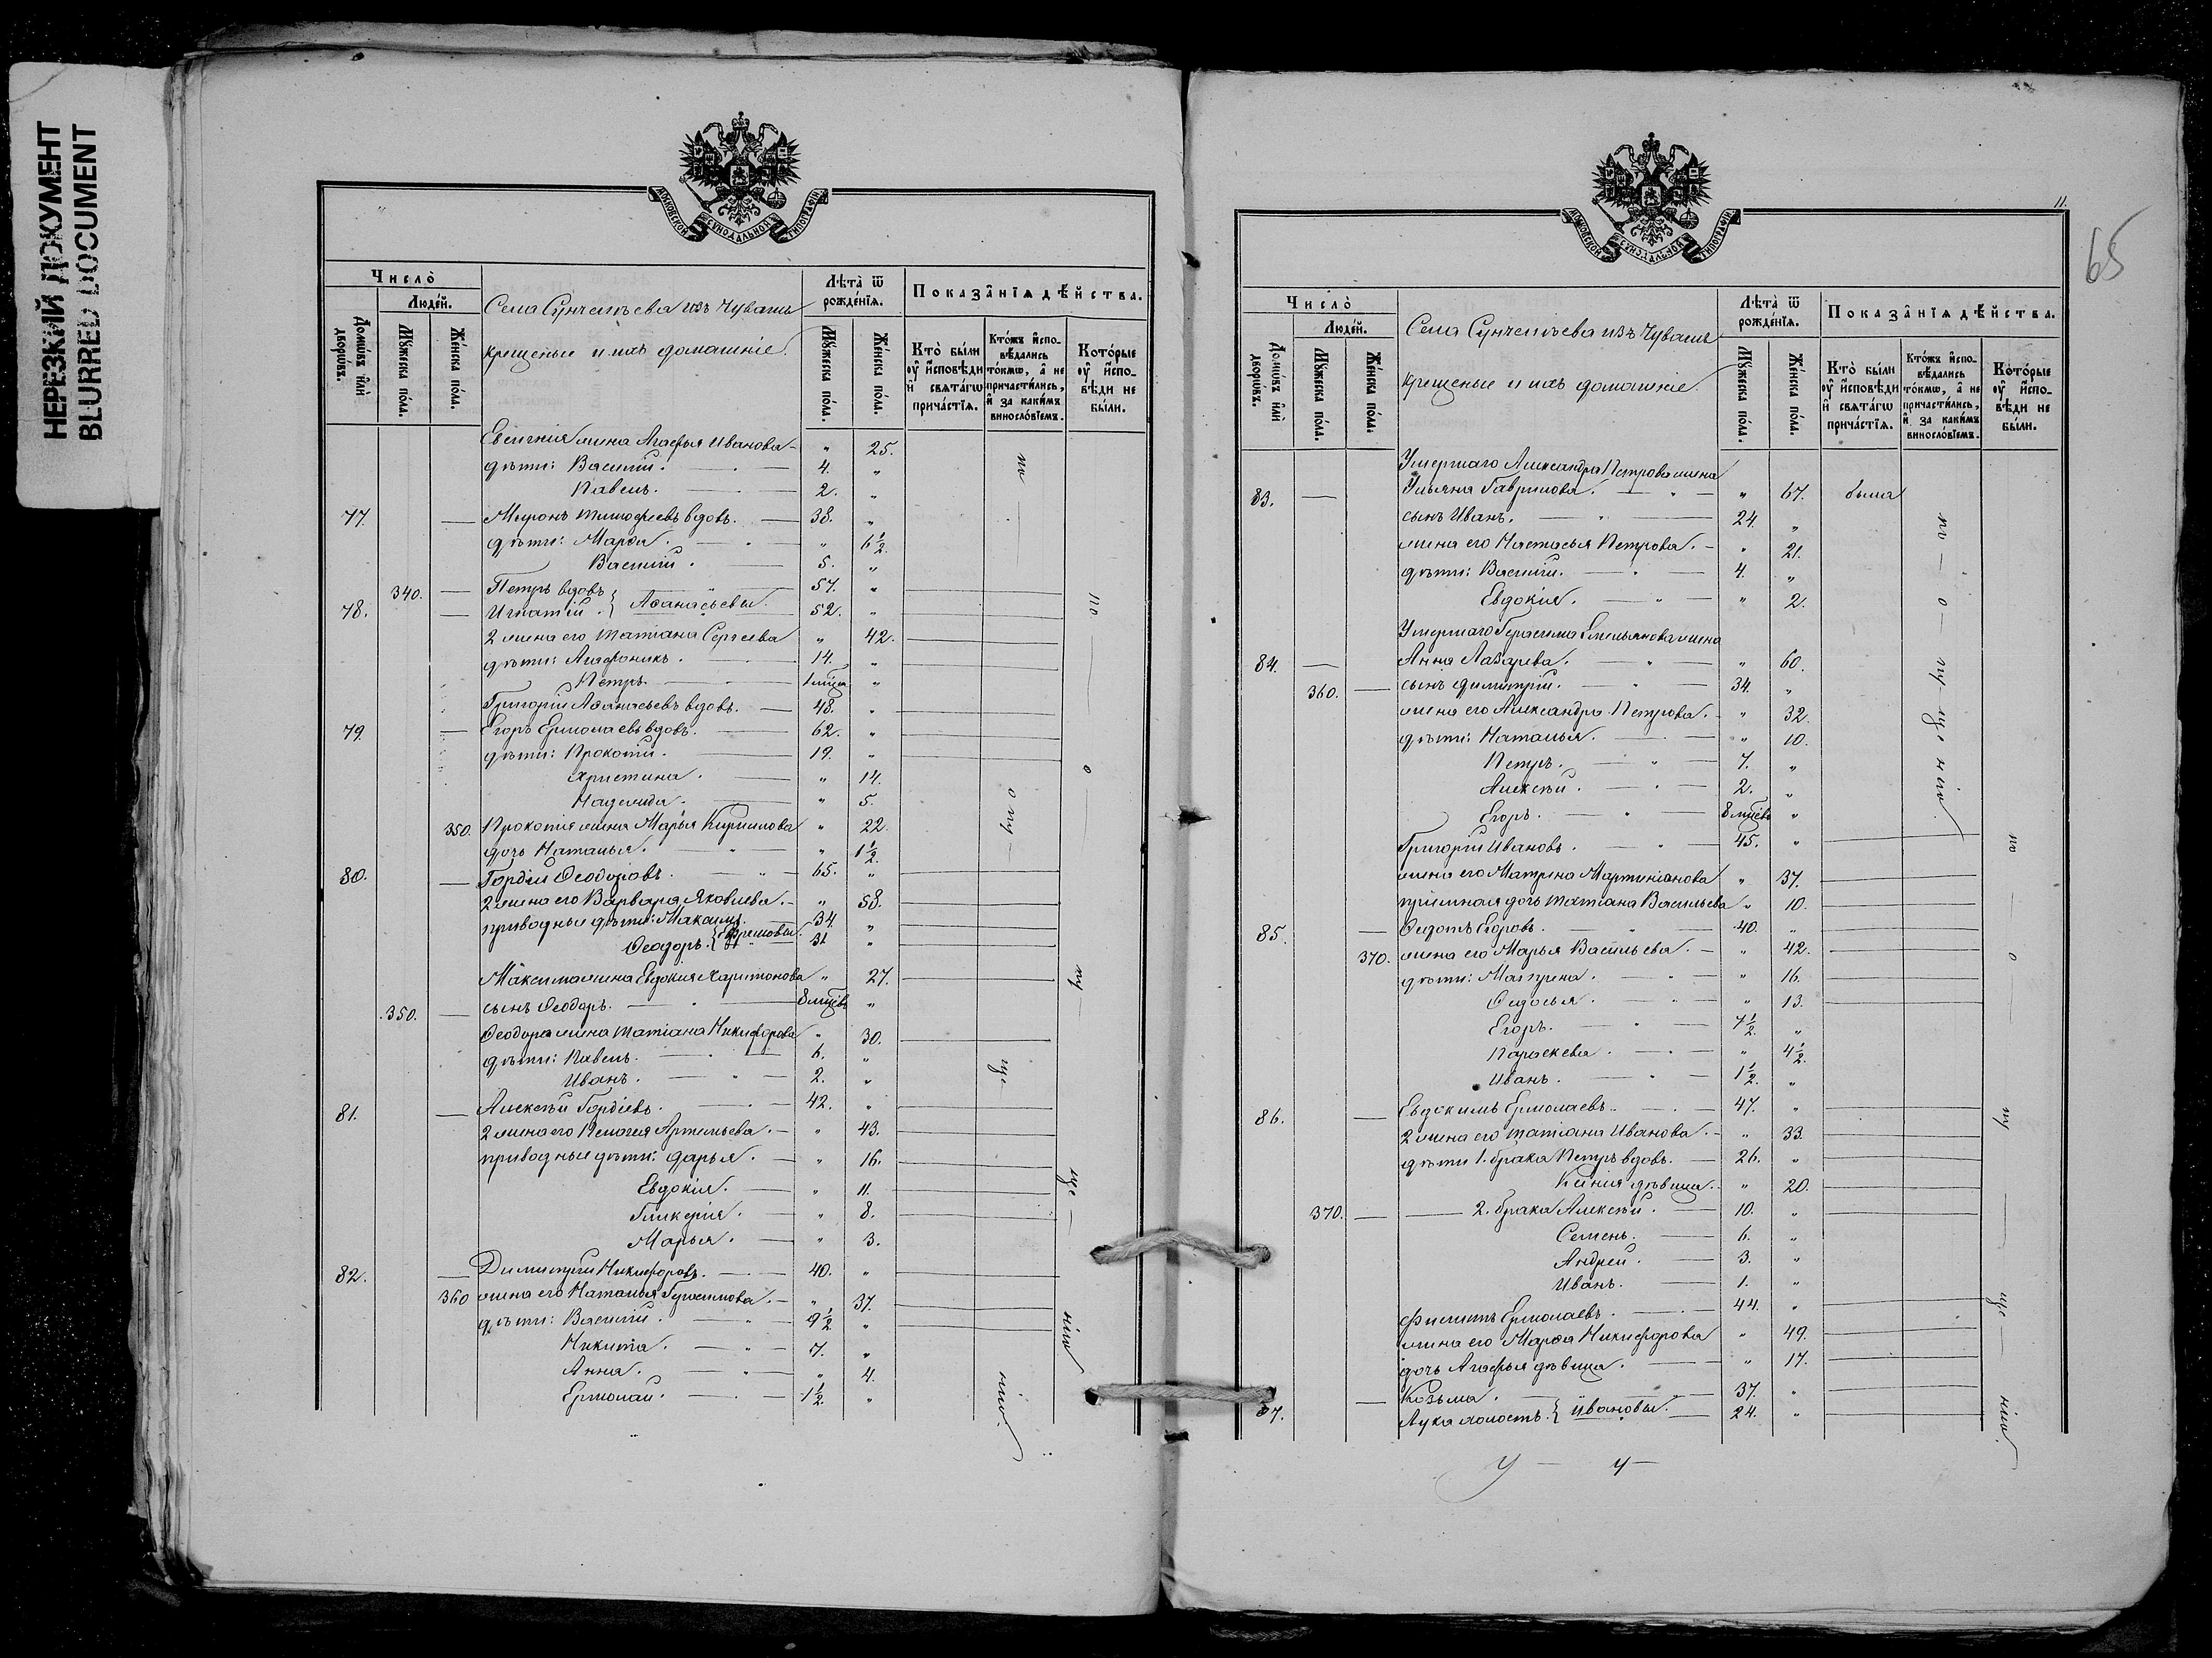 НЕРЕЗКИЙ ДОКУМЕНТ
BLURRED DOCUMENT
МОСКОВСКОЙ СѴНОДАЛЬНОЙ ТИПОГРАФІИ
Число̀
Домѡ́въ и҆лѝ дворѡ́въ.
Люде́й.
Мꙋ́жеска по́ла.
Же́нска по́ла.
Села Сунчелѣева изъ Чувашъ
крещеные и ихъ домашніе.
Лѣта̀ ѿ рожде́нїѧ.
Мꙋ́жеска по́ла.
Же́нска по́ла.
Показа̑нїѧ дѣ́йства.
Кто̀ бы́ли ᲂу҆ и҆сповѣ́ди и҆ свѧта́гѡ прича́стїѧ.
Кто́жъ и҆спо-вѣ́дались то́кмѡ, а҆ не причасти́лись, и҆ за каки́мъ винослѡ́вїемъ.
Кото́рые ᲂу҆ и҆спо-вѣ́ди не бы́ли.
Евгенія жена Агафья Иванова – " 25.
дѣти: Василій. 4. "
Павелъ. 2. "
77. Миронъ Тимофеевъ вдовъ. 38. "
дѣти: Марѳа. " 6 1/2.
Василій. 5. "
340. Петръ вдовъ 57. "
78. Игнатій } Аѳанасьевы. 52. "
2 жена его Татіана Сергеева " 42.
дѣти: Агафоникъ. 14. "
Петръ. 1 мѣсц "
Григорій Аѳанасьевъ вдовъ. 48. "
79. Егоръ Ермолаевъ вдовъ. 62. "
дѣти: Прокопій. 19. "
Христина. " 14.
Надежда. " 5.
350. Прокопія жена Марья Кирилова " 22.
дочь Наталья. " 1 1/2.
80. Гордѣй Ѳеодоровъ. 65. "
2 жена его Варвара Яковлева. – " 58.
приводные дѣти: Максимъ 34. "
Ѳеодоръ } Ефремовы. 31. "
Максима жена Евдокия Харитонова " 27.
350. сынъ Ѳеодоръ. 8 мѣсцевъ "
Ѳеодора жена Татіана Никифорова " 30.
дѣти: Павелъ. 6. "
Иванъ. 2. "
81. Алексѣй Гордіевъ. 42. "
2 жена его Пелагея Артемьева. – " 43.
приводные дѣти: Дарья. – " 16.
Евдокія. " 11.
Гликерія. " 8.
Марья. " 3.
82. Димитрій Никифоровъ. 40. "
360 жена его Наталья Герасимова. – " 37.
дѣти: Василій. 9 1/2 "
Никита. 7. "
Анна. " 4.
Ермолай. 1 1/2. "
по
о
пу
ще
нію
по
о пу
ще
нію.
11.
65
МОСКОВСКОЙ СѴНОДАЛЬНОЙ ТИПОГРАФІИ
Число̀
Домѡ́въ и҆лѝ дворѡ́въ.
Люде́й.
Мꙋ́жеска по́ла.
Же́нска по́ла.
Села Сунчелѣева изъ Чувашъ
крещеные и ихъ домашніе
Лѣта̀ ѿ рожде́нїѧ.
Мꙋ́жеска по́ла.
Же́нска по́ла.
Показа̑нїѧ дѣ́йства.
Кто̀ бы́ли ᲂу҆ и҆сповѣ́ди и҆ свѧта́гѡ прича́стїѧ.
Кто́жъ и҆спо-вѣ́дались то́кмѡ, а҆ не причасти́лись, и҆ за каки́мъ винослѡ́вїемъ.
Кото́рые ᲂу҆ и҆спо-вѣ́ди не бы́ли.
Умершаго Александра Петрова жена
83. Ульяна Гаврилова. " 67. была
сынъ Иванъ. 24. "
жена его Настасья Петрова. – " 21.
дѣти: Василій. 4. "
Евдокія. " 2.
Умершаго Герасима Емельянова жена
84. Анна Лазарева. " 60.
360. сынъ Димитрій. 34. "
жена его Александра Петрова. – " 32.
дѣти: Наталья. " 10.
Петръ. 7. "
Алексѣй. 2. "
Егоръ. 8 мѣсцевъ "
Григорій Ивановъ. 45. "
жена его Матрена Мартиніанова " 37.
пріемная дочь Татіана Васильева " 10.
85. Ѳедотъ Егоровъ. 40. "
370. жена его Марья Васильева. – " 42.
дѣти: Матрена. " 16.
Ѳедосья. " 13.
Егоръ. 7 1/2. "
Параскева. " 4 1/2.
Иванъ. 1 1/2. "
86. Евдокимъ Ермолаевъ. 47. "
2 жена его Татіана Иванова. – " 33.
дѣти 1. брака Петръ вдовъ. 26. "
Ксенія дѣвица. " 20.
370. 2. брака Алексѣй. 10. "
Семенъ. 6. "
Андрей. 3. "
Иванъ. 1. "
Филиппъ Ермолаевъ. 44. "
жена его Марѳа Никифорова " 49.
дочь Агафья дѣвица. " 17.
Козьма. 37. "
87. Лука холостъ. } Ивановы. 24. "
по – о – пу ще нію
по
о
пу
ще
нію.
У — 4 —